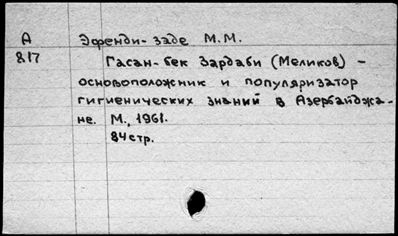 А Эфенди-заде М.М.
817 Гасан-бек Зардаби (Меликов) –
основоположник и популяризатор
гигиенических знаний в Азербайджа-
не. М., 1961.
84стр.